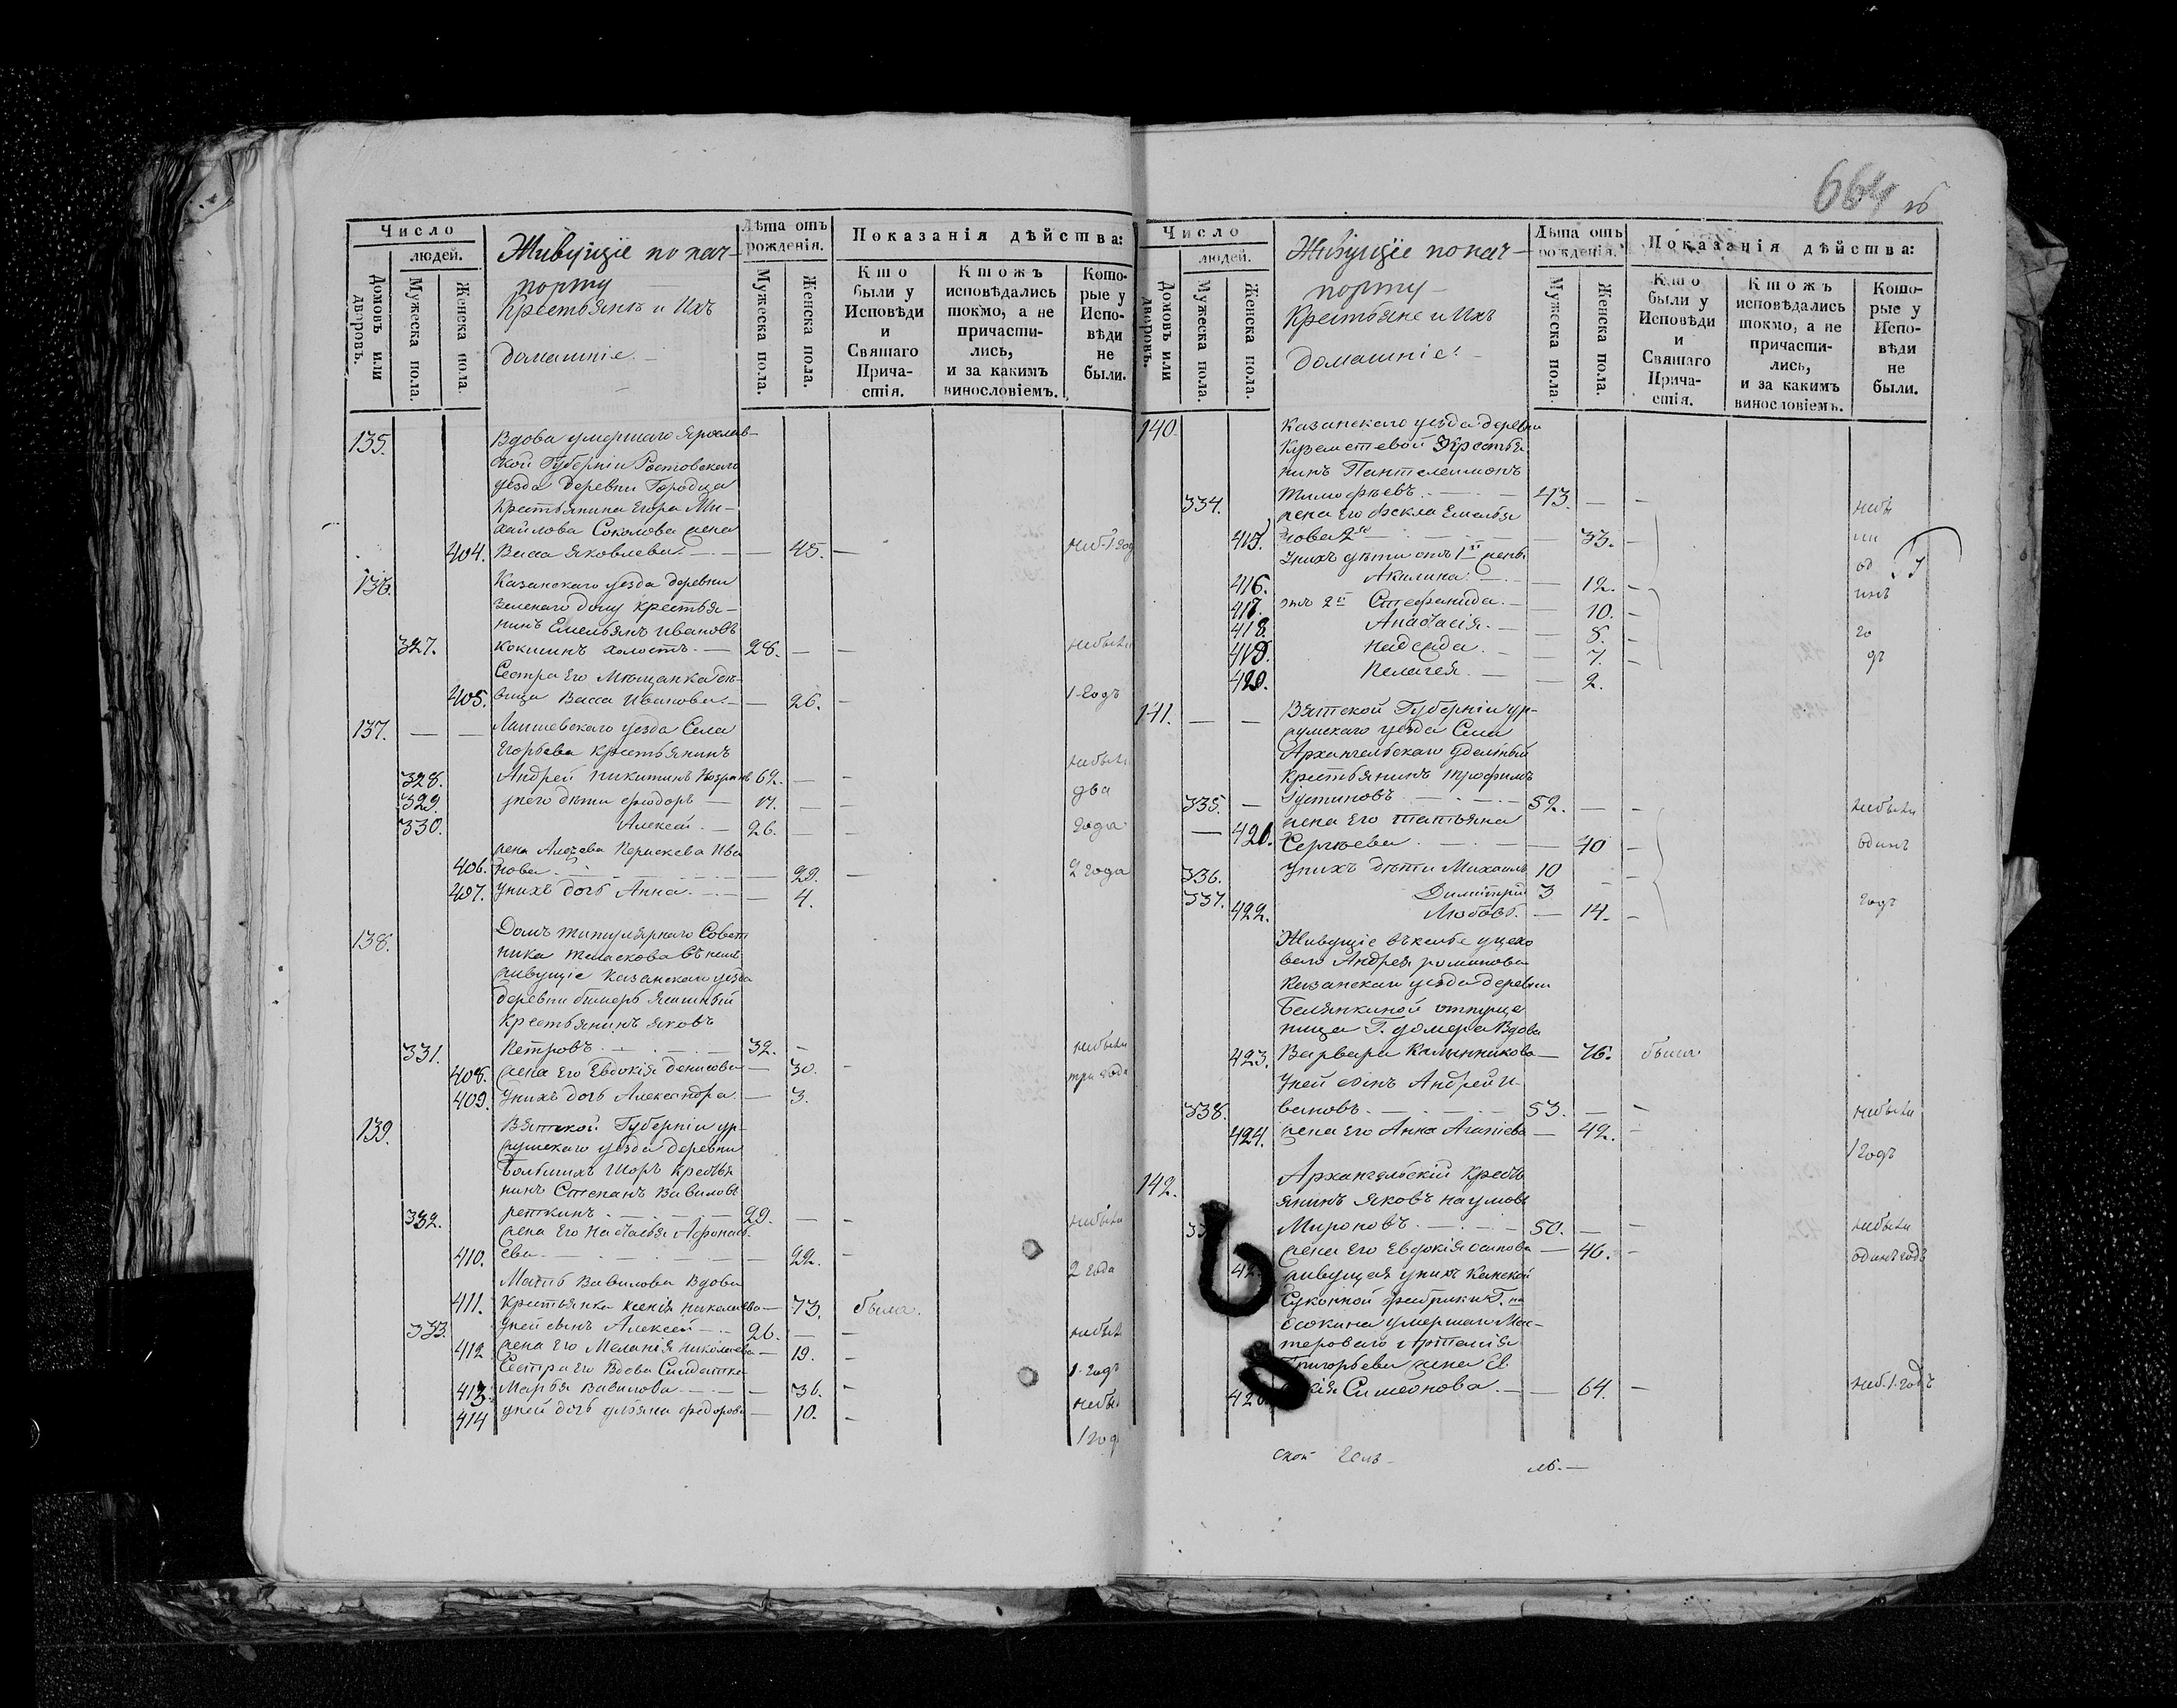 664
Число
людей.
Домовъ или дворовъ.
Мужеска пола.
Женска пола.
Живущіе по пач-
порту
Крестьянѣ и Ихъ
домашніе. —
Лѣта отъ рожденія.
Мужеска пола.
Женска пола.
Показанія дѣйства:
Кто были у Исповѣди и Святаго Прича- стія.
Ктожъ исповѣдались токмо, а не причасти- лись, и за какимъ винословіемъ.
Кото- рые у Испо- вѣди не были.
135. Вдова умершаго Ярослав-
ской Губерніи Ростовскаго
уезда деревни Городца
Крестьянина Егора Ми-
хайлова Соколова жена
404. Васса Яковлева. — 45. — неб. 1 год
136. Казанскаго уезда деревни
Зеленаго долу крестья-
нинъ Емельянъ Ивановъ
327. Кокшинъ холостъ. — 28. — — небыли
Сестра Его Мещанка дѣ-
405. вица Васса Иванова. — 26. — 1 годъ
137. — — Лаишевскаго уезда Села
Егорьева крестьянинъ
328. Андрей Никитинъ 62. — — небыли
329. у него дѣти Феодоръ — 17. — два
330. Алексей. — 26. — — года
жена Алексея Ива
406. нова. — 29. — 2 года
407. У нихъ дочь Анна. — 4.
138. Домъ титулярнаго Совет
ника въ немъ
живущіе Казанскаго уезда
деревни
Крестьянинъ Яковъ
331. Петровъ. — 32. — небыли
408. жена Его Евдокія Денисова — 30. — три года
409. У нихъ дочь Александра. — 3.
139. Вятской Губерніи ур-
жумскаго уезда деревни
Большихъ Шоръ крестья
нинъ Степанъ Вавиловъ
332. репкинъ. — 29. — — небыли
жена Его Наталья Афонась
410. ева. — 22. — 2 года
Мать Вавилова Вдова
411. Крестьянка Ксенія Николаева — 73. была.
333. У ней сынъ Алексей — 26. — — небыли
412 жена Его Меланія Николаева — 19. —
Сестра Его Вдова Салдатка 1 годъ
413. Марья Вавилова. — 36. — небы
414 у ней дочь Ульяна Федорова — 10. — 1 год
Число
людей.
Домовъ или дворовъ.
Мужеска пола.
Женска пола.
Живущіе по пач-
порту —
Крестьяне и Ихъ
домашніе. —
Лѣта отъ рожденія.
Мужеска пола.
Женска пола.
Показанія дѣйства:
Кто были у Исповѣди и Святаго Прича- стія.
Ктожъ исповѣдались токмо, а не причасти- лись, и за какимъ винословіемъ.
Кото- рые у Испо- вѣди не были.
140. Казанскаго уезда деревни
Крестья
нинъ Пантелеимонъ
334. Тимофѣевъ. — 43. — — небы
жена Его Фекла Емелья
415. нова 2я — 33. — ли
У нихъ дѣти отъ 1й жены
416. Акилина. — 12. — од
417. отъ 2й Стефанида. — 10. — инъ
418. Анастасія. — 8. — го
419. Надежда. — 7. — дъ
420. Пелагея. — 2.
141. — — Вятской Губерніи ур-
жумскаго уезда Села
Архангельскаго Удельный
Крестьянинъ Трофимъ
335. — Іустиновъ — 52. — — небыли
жена Его Татьяна
— 421. Сергѣева. — 40 — одинъ
336. У нихъ дѣти Михаилъ 10 — —
337. Димитрій 3
422. Любовь. — 14. — годъ
Живущіе въ кельѣ у цехо
ваго Андрея романова
Казанскаго уезда деревни
Белянкиной отпуще
ница Г. домера Вдова
423. Варвара Калинникова — 76. была
У ней сынъ Андрей И-
338. вановъ. — 53. — — небыли
424. жена Его Анна — 42. — 1 годъ
142. Архангельскій крест
янинъ Яковъ Наумовъ
Мироновъ. — 50. — — небыли
жена Его Евдокія Осипова — 46. — одинъ годъ
живущая у нихъ Казанской
Суконной фабрики Г. на
Осокина умершаго Мас-
тероваго
Григорьева жена Ев
кія Симеонова. — 64. — неб. 1. годъ
ской